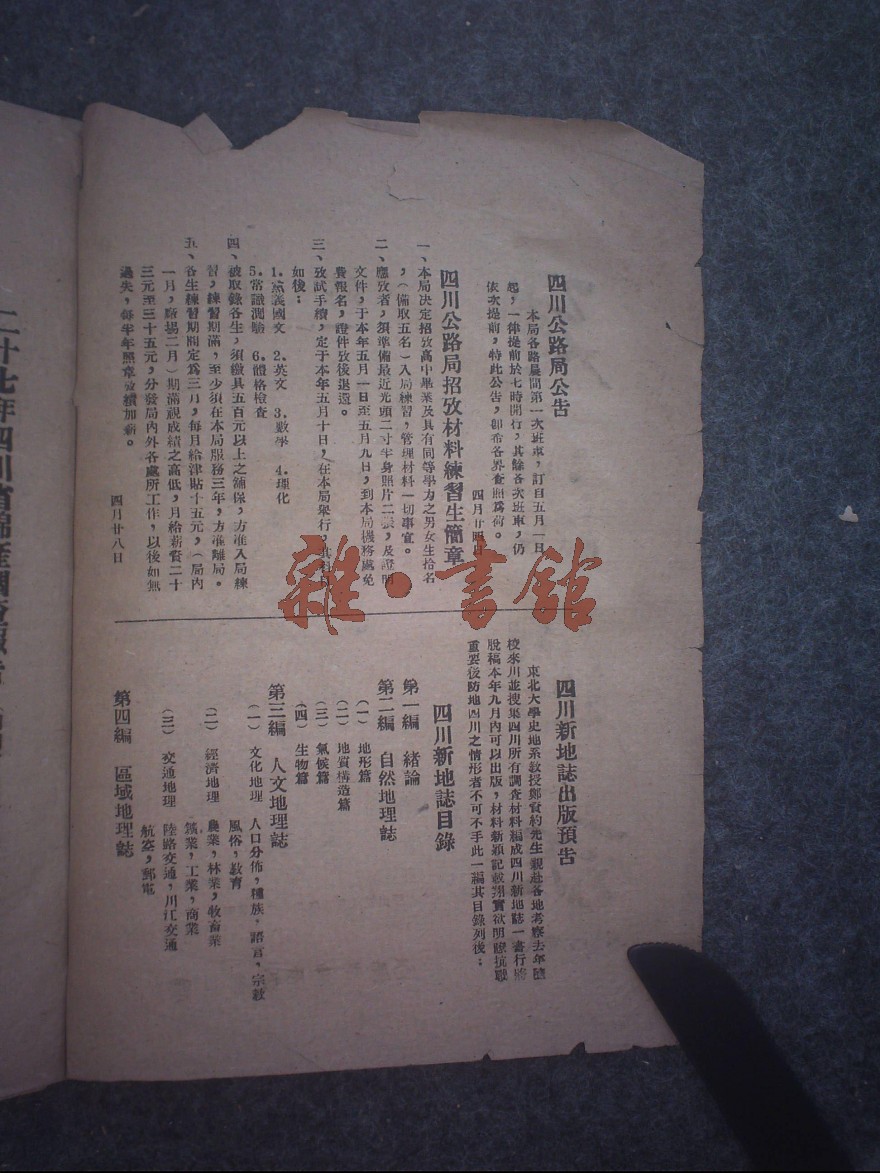 四川公路局公告
本局各路晨間第一次班車，訂自五月一日
起，一律提前於七時開行，其餘各次班車，仍
依次提前，特此公告，即希各界查照為荷。
四月廿四日
四川公路局招攷材料練習生簡章
一、本局決定招攷高中畢業及具有同等學力之男女生拾名
，（備取五名）入局練習，管理材料一切事宜。
二、應攷者，須準備最近光頭二寸半身照片二張，及證明
文件，于本年五月一日至五月九日，到本局機務處免
費報名，證件攷後退還。
三、攷試手續，定于本年五月十日，在本局舉行，其科目
如後：
1.黨義國文 2.英文 3.數學 4.理化
5.常識測驗 6.體格檢查
四、被取錄各生，須繳具五百元以上之舖保，方准入局練
習，練習期滿，至少須在本局服務三年，方准離局。
五、各生練習期間定為三月，每月給津貼十五元，（局內
一月，廠場二月）期滿視成績之高低，月給薪餐二十
三元至三十五元，分發局內外各處所工作，以後如無
過失，每半年照章攷績加薪。
四月廿八日
四川新地誌出版預告
東北大學史地系教授鄭資約先生親赴各地考察去年隨
校來川並搜集四川所有調查材料編成四川新地誌一書行將
脫稿本年九月內可以出版，材料新穎記載翔實欲明瞭抗戰
重要後防地四川之情形者不可不手此一編其目錄列後：
四川新地誌目錄
第一編 緒論
第二編 自然地理誌
（一）地形篇
（二）地質構造篇
（三）氣候篇
（四）生物篇
第三編 人文地理誌
（一）文化地理 人口分佈，種族，語言，宗教
風俗，教育
（二）經濟地理 農業，林業，牧畜業
鑛業，工業，商業
（三）交通地理 陸路交通，川江交通
航空，郵電
第四編 區域地理誌
二十七年四川省棉產調查報告
雜·書館